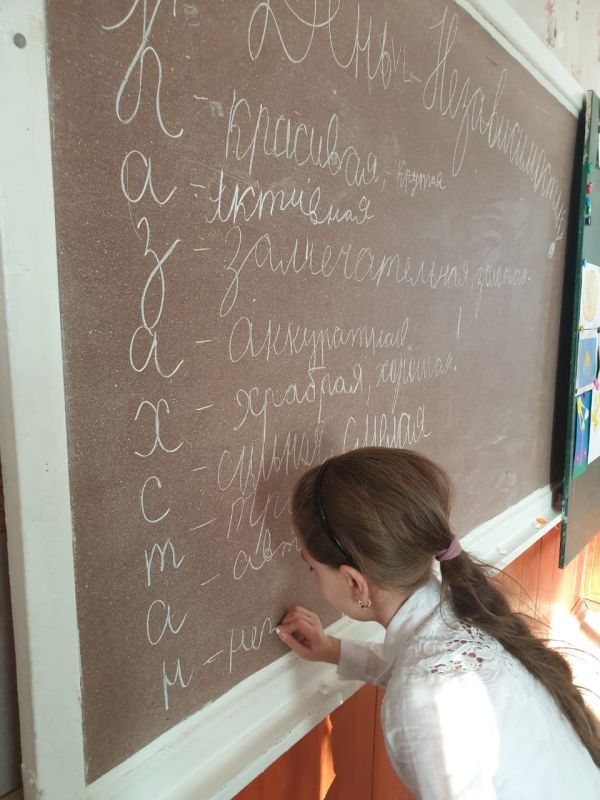 День Независимости
К - красивая, крутая
а - активная
з - замечательная, зеленая.
а - аккуратная
х - храбрая, хорошая!
с - сильная, смелая
т -
а -
н -